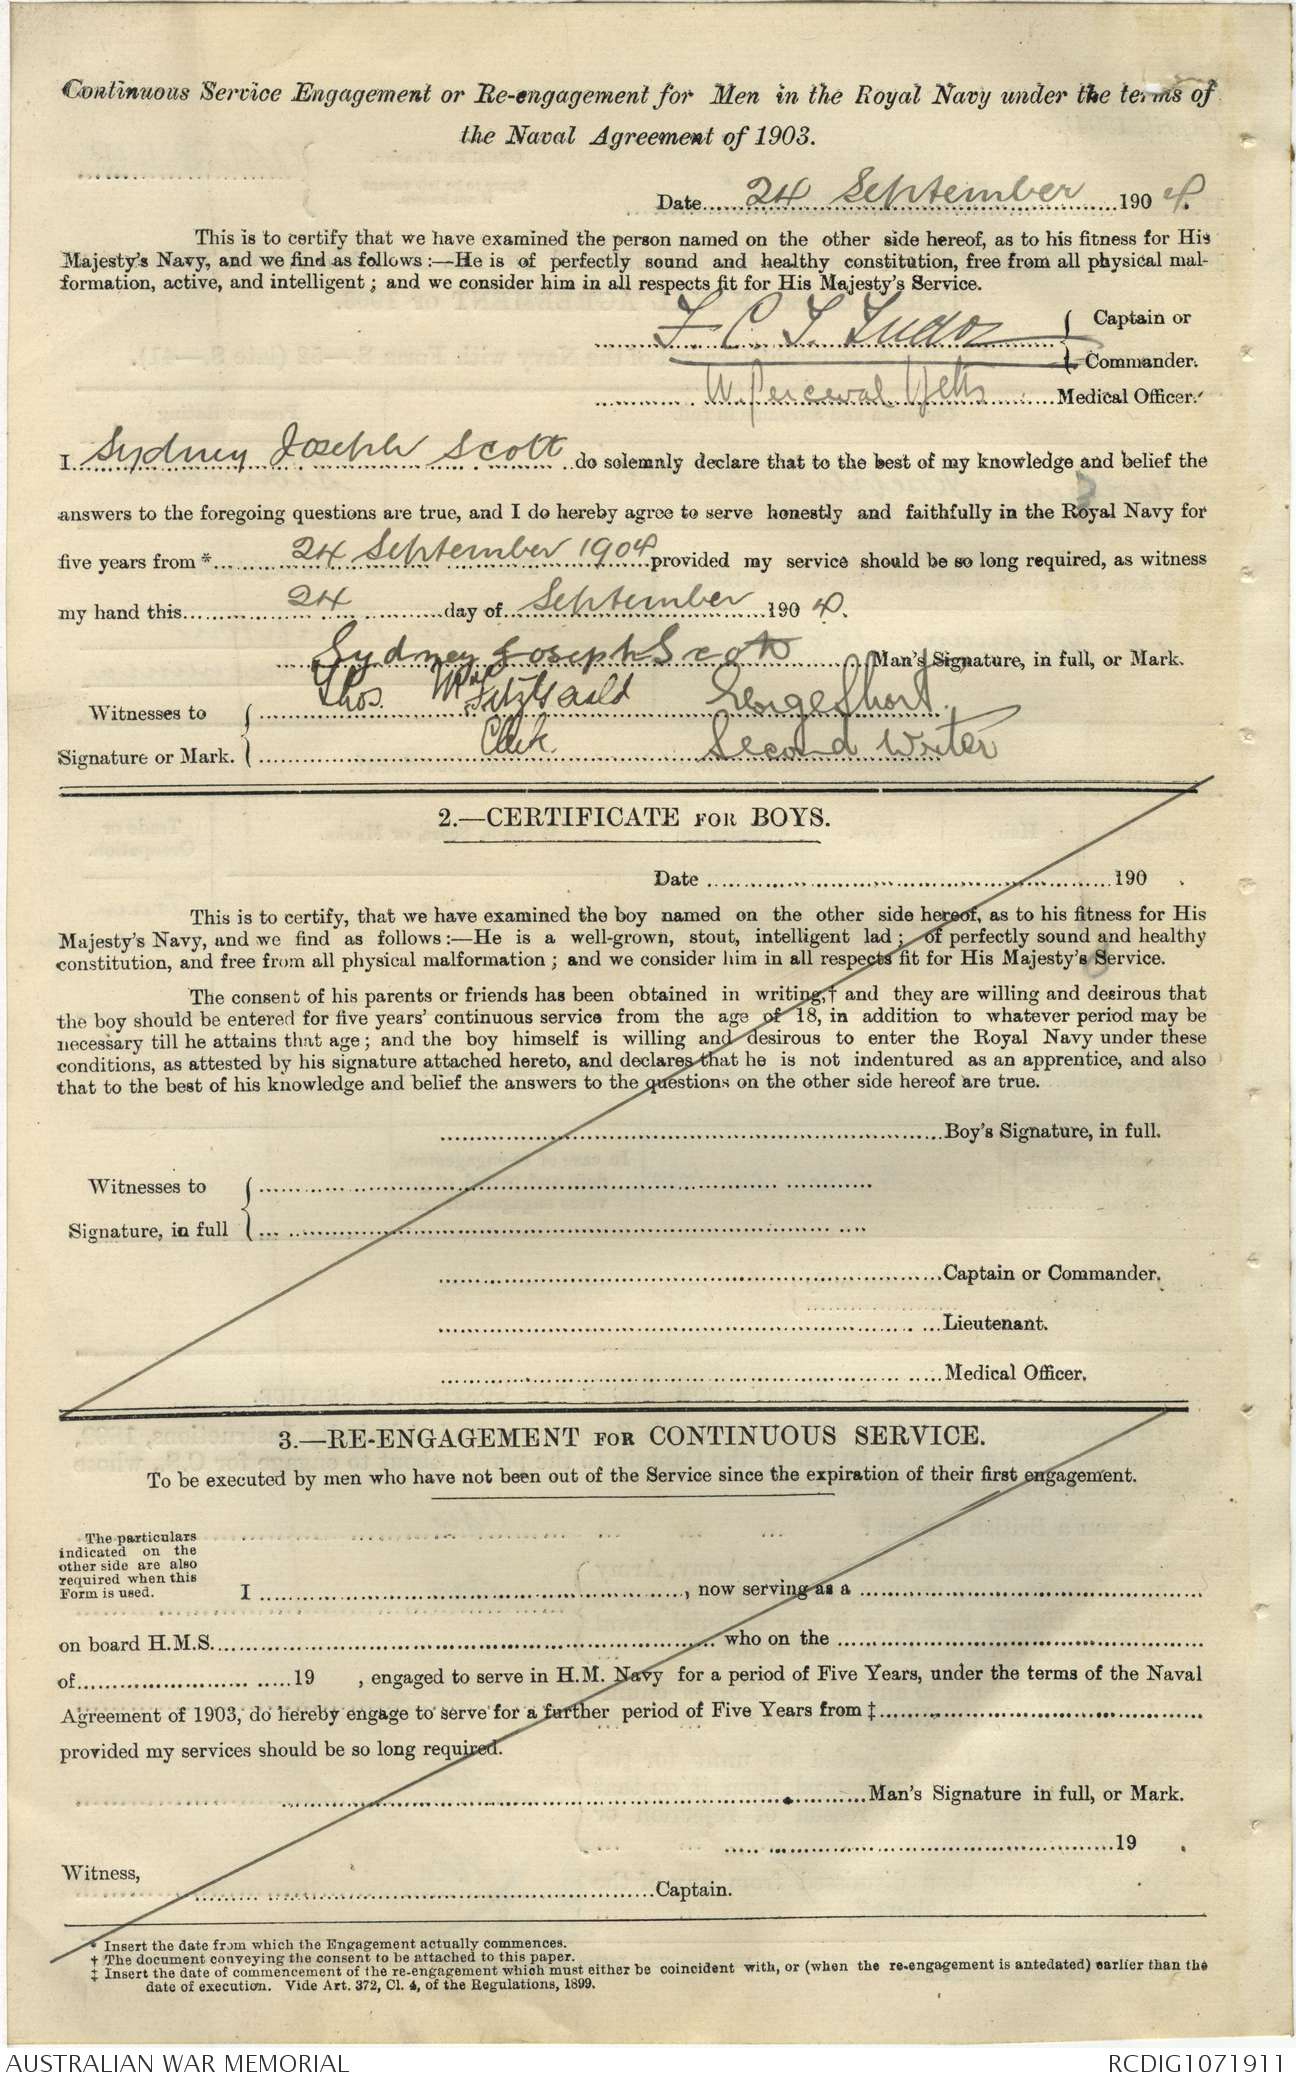 Continuous Service Engagement or Re-engagement for Men in the Royal Navy under the terms of
the Naval Agreement of 1903.
Date 24 September 1904.
This is to certify that we have examined the person named on the other side hereof, as to his fitness for His
Majesty's Navy, and we find as follows:—He is of perfectly sound and healthy constitution, free from all physical mal-
formation, active, and intelligent; and we consider him in all respects fit for His Majesty's Service.
F. C. T. Tudor { Captain or
Commander.
W. Perceval Yetts Medical Officer.
I Sydney Joseph Scott do solemnly declare that to the best of my knowledge and belief the
answers to the foregoing questions are true, and I do hereby agree to serve honestly and faithfully in the Royal Navy for
five years from * 24 September 1904 provided my service should be so long required, as witness
my hand this 24 day of September 1904.
Sydney Joseph Scott Man's Signature, in full, or Mark.
Witnesses to { Thos. Fitzgerald George Short
Signature or Mark. { Clerk. Second Writer
2.—CERTIFICATE FOR BOYS.
Date 190 .
This is to certify, that we have examined the boy named on the other side hereof, as to his fitness for His
Majesty's Navy, and we find as follows:—He is a well-grown, stout, intelligent lad; of perfectly sound and healthy
constitution, and free from all physical malformation; and we consider him in all respects fit for His Majesty's Service.
The consent of his parents or friends has been obtained in writing,† and they are willing and desirous that
the boy should be entered for five years' continuous service from the age of 18, in addition to whatever period may be
necessary till he attains that age; and the boy himself is willing and desirous to enter the Royal Navy under these
conditions, as attested by his signature attached hereto, and declares that he is not indentured as an apprentice, and also
that to the best of his knowledge and belief the answers to the questions on the other side hereof are true.
Boy's Signature, in full.
Witnesses to
Signature, in full
Captain or Commander.
Lieutenant.
Medical Officer.
3.—RE-ENGAGEMENT FOR CONTINUOUS SERVICE.
To be executed by men who have not been out of the Service since the expiration of their first engagement.
The particulars
indicated on the
other side are also
required when this
Form is used.
I , now serving as a
on board H.M.S. who on the
of 19 , engaged to serve in H.M. Navy for a period of Five Years, under the terms of the Naval
Agreement of 1903, do hereby engage to serve for a further period of Five Years from ‡
provided my services should be so long required.
Man's Signature in full, or Mark.
19 .
Witness,
Captain.
* Insert the date from which the Engagement actually commences.
† The document conveying the consent to be attached to this paper.
‡ Insert the date of commencement of the re-engagement which must either be coincident with, or (when the re-engagement is antedated) earlier than the
date of execution. Vide Art. 372, Cl. 4, of the Regulations, 1899.
AUSTRALIAN WAR MEMORIAL RCDIG1071911